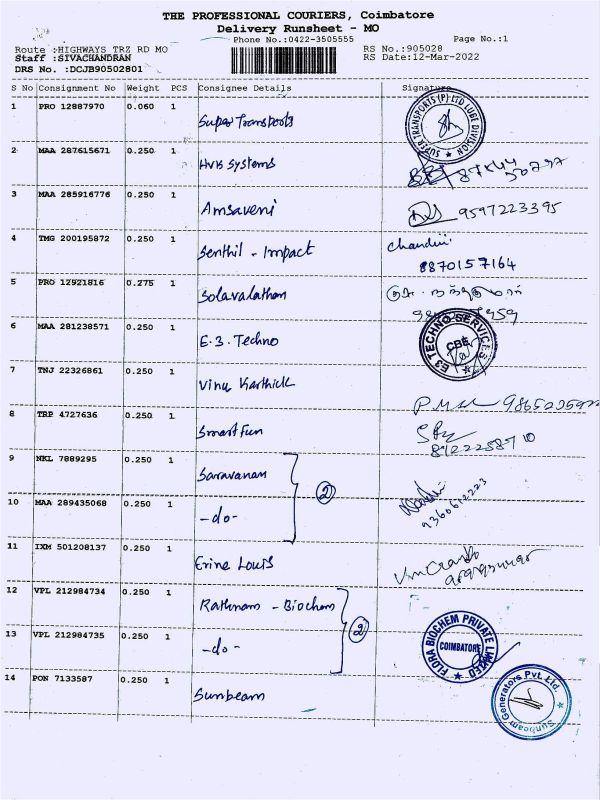 THE PROFESSIONAL COURIERS, Coimbatore
Delivery Runsheet - MO
Phone No.:0422-3505555
Page No.:1
Route :HIGHWAYS TRZ RD MO
RS No.:905028
Staff :SIVACHANDRAN
RS Date:12-Mar-2022
DRS No. :DCJB90502801
S No Consignment No Weight PCS Consignee Details Signature
1 PRO 12887970 0.060 1 Super Transports
SUPER TRANSPORTS (P) LTD LUBE DIVISION
2 MAA 287615671 0.250 1 HVK Systems
3 MAA 285916776 0.250 1 Amsaveni 9597223395
4 TMG 200195872 0.250 1 Senthil - Impact Chandini
8870157164
5 PRO 12921816 0.275 1 Solavalathan
6 MAA 281238571 0.250 1 E.3. Techno
E3 TECHNO SERVICES CBE
7 TNJ 22326861 0.250 1 Vinu Karthick
8 TRP 4727636 0.250 1 SmartFun
9 NKL 7889295 0.250 1 Saravanan
2
10 MAA 289435068 0.250 1 -do- 9360612223
11 IXM 501208137 0.250 1 Erine Louis
12 VPL 212984734 0.250 1 Rathnam - Biochem
2
13 VPL 212984735 0.250 1 -do-
FLORA BIOCHEM PRIVATE LIMITED COIMBATORE
14 PON 7133587 0.250 1 Sunbeam
Sunbeam Generators Pvt. Ltd.